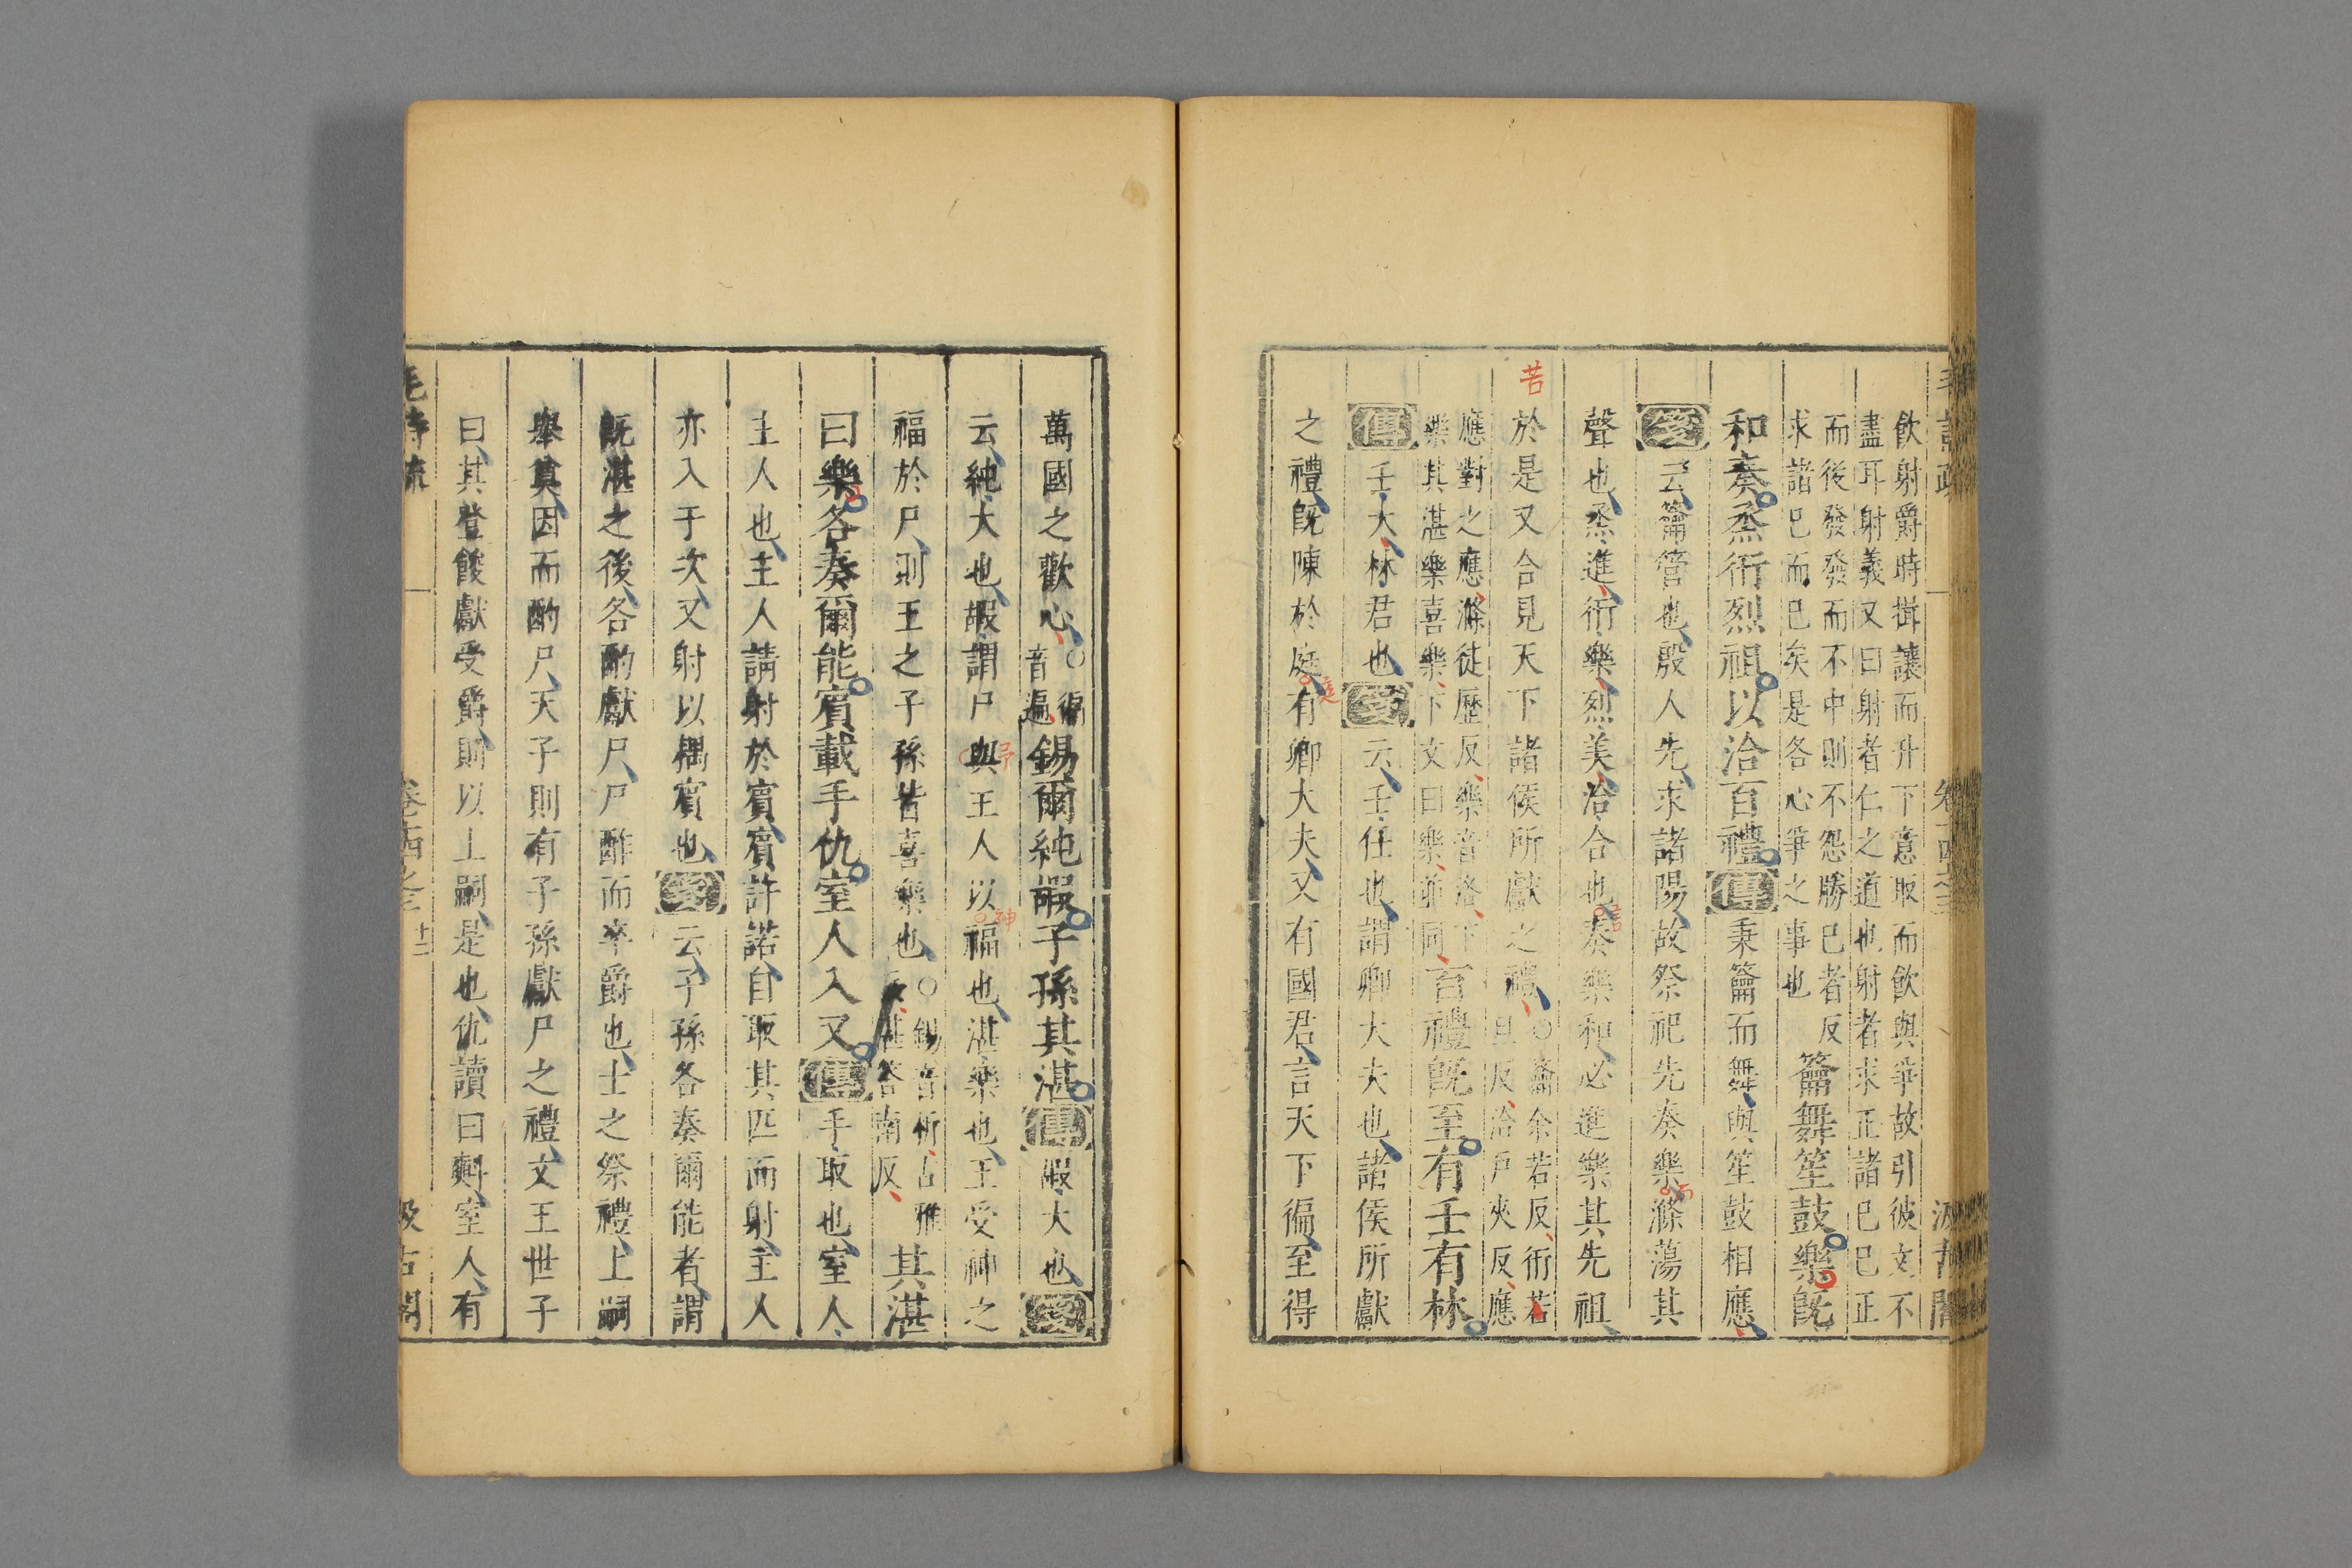 飲射爵時揖讓而升下意取而飲與爭故引彼文不
盡耳射義又曰射者仁之道也射者求正諸己己正
而後發發而不中則不怨勝己者反
求諸己而已矣是各心爭之事也
籥舞笙鼓樂既
和奏烝衎烈祖以洽百禮傳秉籥而舞與笙鼓相應
箋云籥管也殷人先求諸陽故祭祀先奏樂滌蕩其
聲也烝進衎樂烈美洽合也奏樂和必進樂其先祖
於是又合見天下諸侯所獻之禮○籥余若反衎若
旦反洽戶夾反應
應對之應滌徒歷反樂音洛下
樂其湛樂喜樂下文曰樂並同
百禮既至有壬有林
傳壬大林君也箋云壬任也謂卿大夫也諸侯所獻
之禮既陳於庭有卿大夫又有國君言天下徧至得
萬國之歡心○徧
音遍
錫爾純嘏子孫其湛傳嘏大也箋
云純大也嘏謂尸與王人以福也湛樂也王受神之
福於尸則王之子孫皆喜樂也○錫音析嘏古雅
反湛荅南反
其湛
曰樂各奏爾能賓載手仇室人入又傳手取也室人
主人也主人請射於賓賓許諾自取其匹而射主人
亦入于次又射以耦賓也箋云子孫各奏爾能者謂
既湛之後各酌獻尸尸酢而卒爵也士之祭禮上嗣
舉奠因而酌尸天子則有子孫獻尸之禮文王世子
曰其登餕獻受爵則以上嗣是也仇讀曰㪺室人有
毛詩疏
卷十四之三
十二
汲古閣